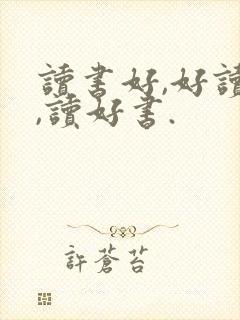 讀書好,好讀
,讀好書.
許蒼苔